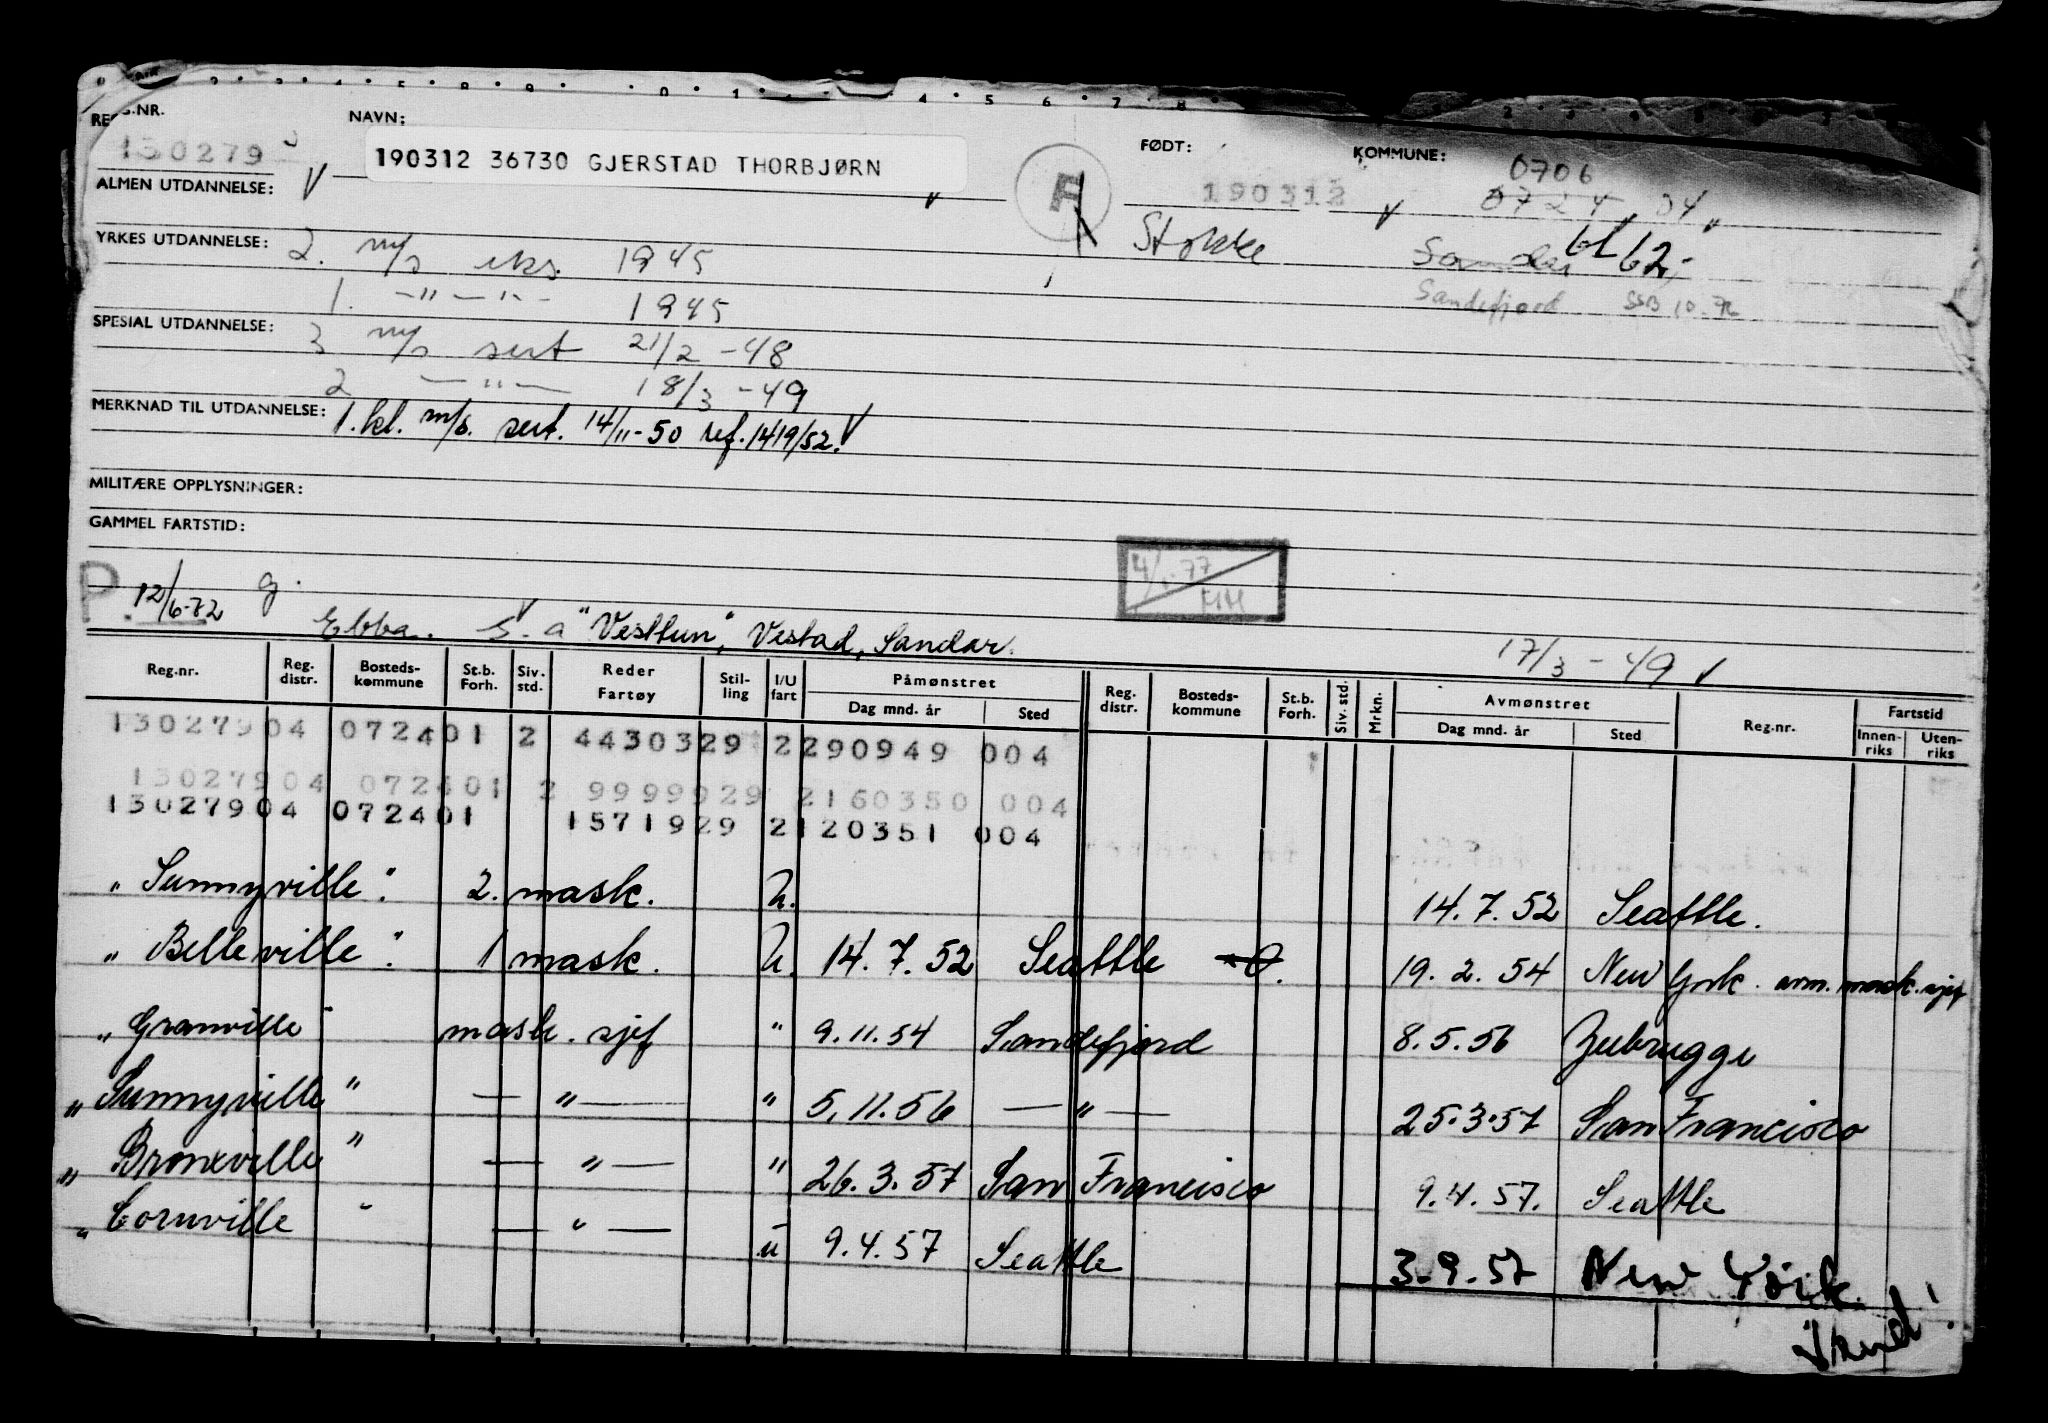 REG.NR. NAVN: FØDT: KOMMUNE:
130279 190312 36730 GJERSTAD THORBJØRN 190312 0706
0724 04
ALMEN UTDANNELSE:
Stokke Sandar 62
YRKES UTDANNELSE: 2. m/s eks. 1945
Sandefjord SSB 10.72
1. -"- -"- 1945
SPESIAL UTDANNELSE: 3 m/s sert 21/2 -48
2 -"- 18/3 -49
MERKNAD TIL UTDANNELSE: 1. kl. m/s. sert. 14/11-50 ref. 1419/52.
MILITÆRE OPPLYSNINGER:
GAMMEL FARTSTID:
4/1.77
HH
P. 12/6-72 g.
Ebba. G. a "Vesttun", Vestad, Sandar. 17/3 -49
Reg.nr. Reg. distr. Bosteds-kommune St.b. Forh. Siv. std. Reder Fartøy Stil-ling I/U fart Påmønstret Dag mnd. år Sted Reg. distr. Bosteds-kommune St.b. Forh. Siv. std. Mrkn. Avmønstret Dag mnd. år Sted Reg.nr. Fartstid Innen-riks Uten-riks
130279 04 0724 01 2 44303 29 2 290949 004
130279 04 0724 01 2 99999 29 2 160350 004
130279 04 0724 01 15719 29 2 120351 004
"Sunnyville". 2. mask. U. 14.7.52 Seattle.
"Belleville". 1 mask. U. 14.7.52 Seattle 19.2.54 New York. avm. mask. sjef
"Granville" mask. sjef " 9.11.54 Sandefjord 8.5.56 Zeebrugge
"Sunnyville" — " — " 5.11.56 — " — 25.3.57 San Francisco
"Bronxville" — " — " 26.3.57 San Francisco 9.4.57. Seattle
"Cornville" — " — u 9.4.57 Seattle 3.9.57 New York.